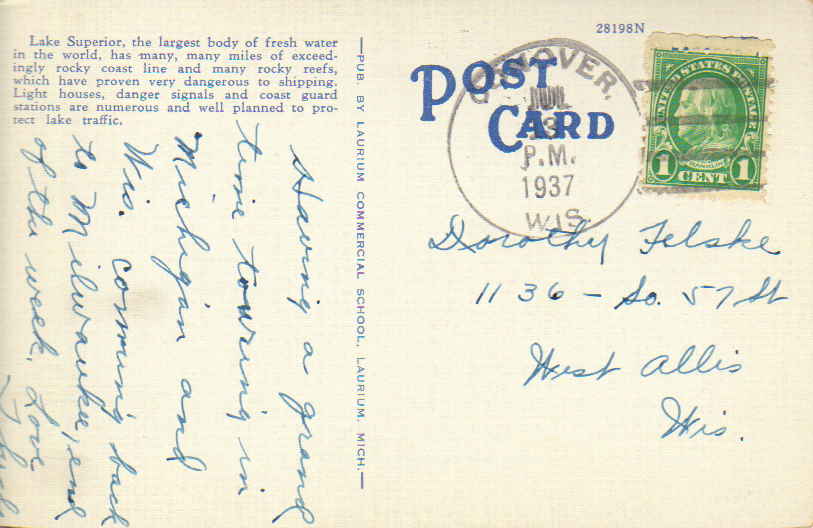 Lake Superior, the largest body of fresh water
in the world, has many, many miles of exceed-
ingly rocky coast line and many rocky reefs,
which have proven very dangerous to shipping.
Light houses, danger signals and coast guard
stations are numerous and well planned to pro-
tect lake traffic.
Having a grand
time touring in
Michigan and
Wis. coming back
to Milwaukee, end
of the week. Love
PUB. BY LAURIUM COMMERCIAL SCHOOL, LAURIUM, MICH.
28198N
POST
CARD
CONOVER,
13
P.M.
1937
WIS.
UNITED STATES POSTAGE
FRANKLIN
1 CENT 1
Dorothy Felske
1136 - So. 57 St
West Allis
Wis.